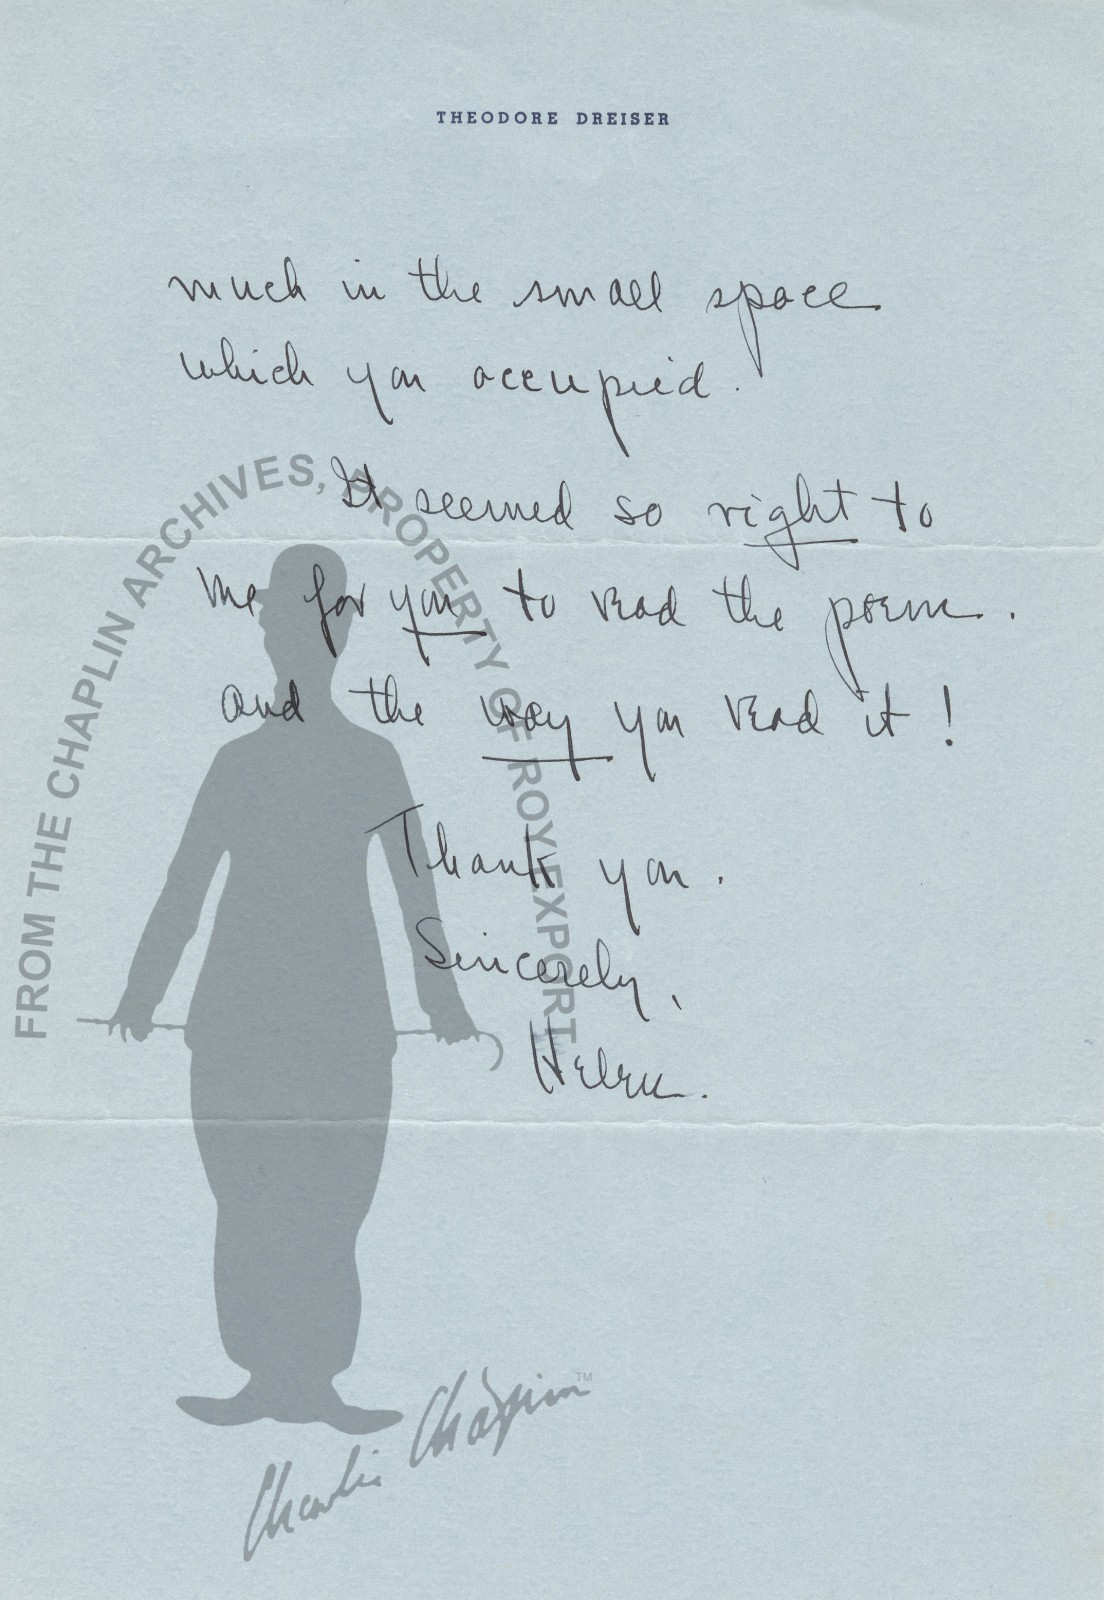 THEODORE DREISER
much in the small space
which you occupied.
It seemed so right to
me for you to read the poem.
and the way you read it!
Thank you.
Sincerely,
Helen.
FROM THE CHAPLIN ARCHIVES, PROPERTY OF ROY EXPORT
Charlie Chaplin™